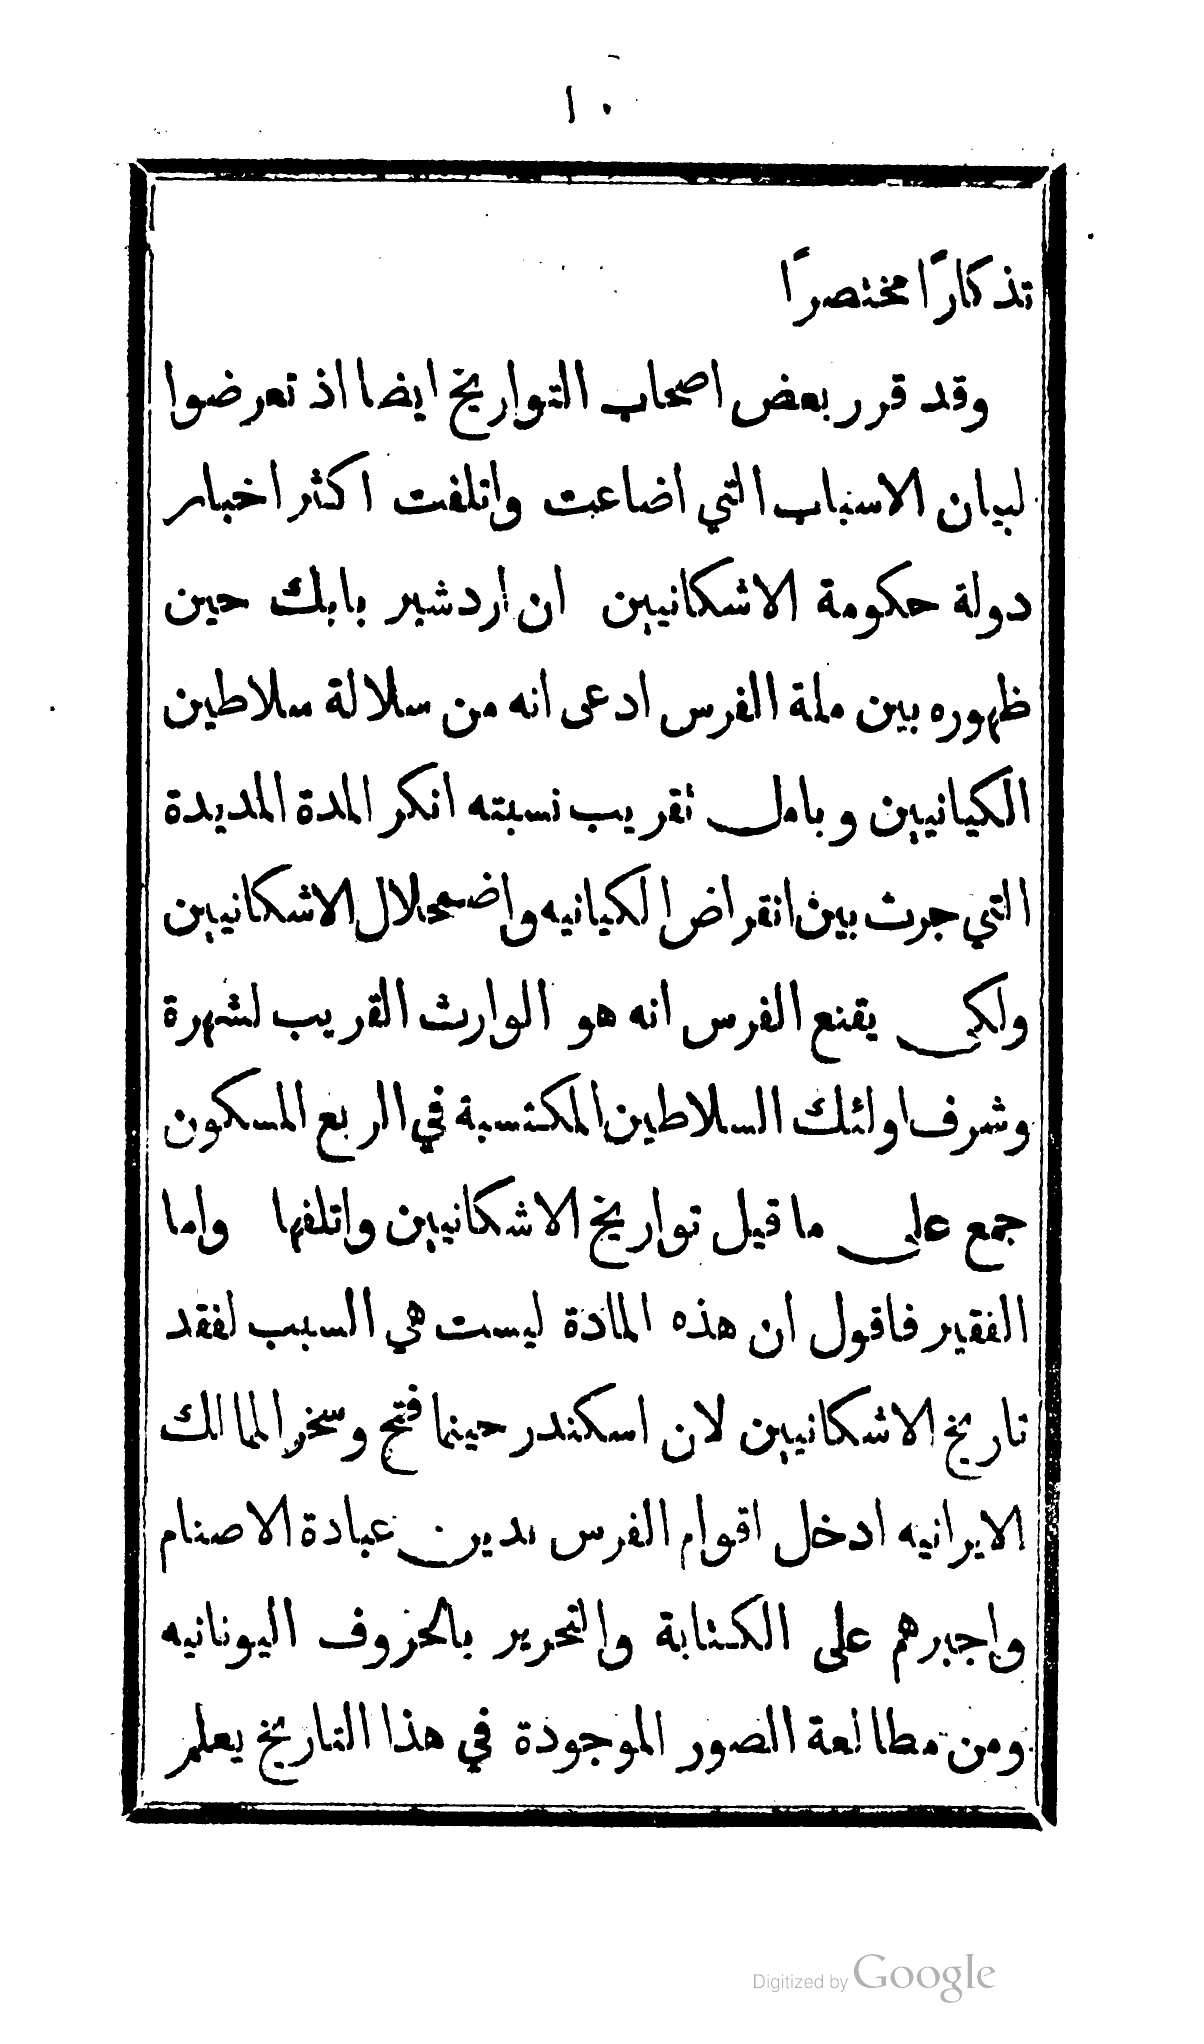 ١٠
تذكارًا مختصرًا
وقد قرر بعض اصحاب التواريخ ايضا اذ تعرضوا
لبيان الاسباب التي اضاعت واتلفت اكثر اخبار
دولة حكومة الاشكانيين ان اردشير بابك حين
ظهوره بين ملة الفرس ادعى انه من سلالة سلاطين
الكيانيين وبامل تقريب نسبته انكر المدة المديدة
التي جرت بين انقراض الكيانيه واضمحلال الاشكانيين
ولكي يقنع الفرس انه هو الوارث القريب لشهرة
وشرف اولئك السلاطين المكتسبة في الربع المسكون
جمع على ما قيل تواريخ الاشكانيين واتلفها واما
الفقير فاقول ان هذه المادة ليست هي السبب لفقد
تاريخ الاشكانيين لان اسكندر حينما فتح وسخر الممالك
الايرانيه ادخل اقوام الفرس بدين عبادة الاصنام
واجبرهم على الكتابة والتحرير بالحروف اليونانيه
ومن مطالعة الصور الموجودة في هذا التاريخ يعلم
Digitized by Google